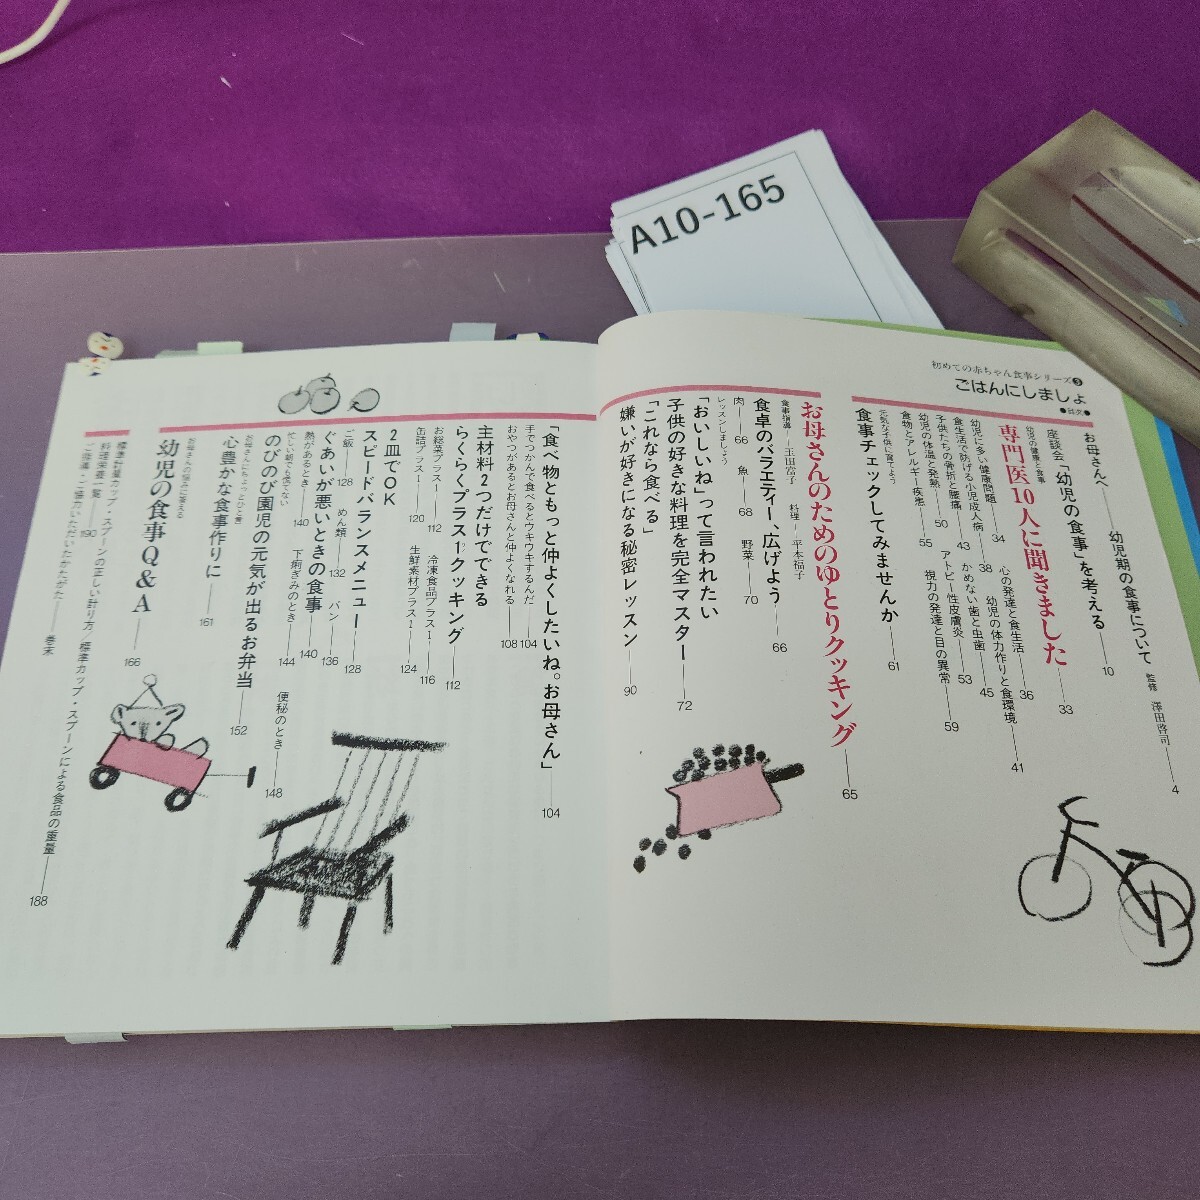 A10-165
初めての赤ちゃん食事シリーズ❸
ごはんにしましょ
●目次●
お母さんへ——幼児期の食事について 監修 澤田啓司——4
座談会「幼児の食事」を考える——10
幼児の健康と食事
専門医10人に聞きました——33
幼児に多い健康問題——34 心の発達と食生活——36
食生活で防げる小児成人病——38 幼児の体力作りと食環境——41
子供たちの骨折と腰痛——43 かめない歯と虫歯——45
幼児の体温と発熱——50 アトピー性皮膚炎——53
食物とアレルギー疾患——55 視力の発達と目の異常——59
元気な子供に育てよう
食事チェックしてみませんか——61
お母さんのためのゆとりクッキング——65
食事指導——玉田富子 料理——平本福子
食卓のバラエティー、広げよう——66
肉——66 魚——68 野菜——70
レッスンしましょう
「おいしいね」って言われたい
子供の好きな料理を完全マスター——72
「これなら食べる」
嫌いが好きになる秘密レッスン——90
「食べ物ともっと仲よくしたいね。お母さん」——104
手でつかんで食べるとウキウキするんだ——104
おやつがあるとお母さんと仲よくなれる——108
主材料2つだけでできる
らくらくプラス1クッキング——112
お総菜プラス1——112 冷凍食品プラス1——116
缶詰プラス1——120 生鮮素材プラス1——124
2皿でOK
スピードバランスメニュー——128
ご飯——128 めん類——132 パン——136
ぐあいが悪いときの食事——140
熱があるとき——140 下痢ぎみのとき——144 便秘のとき——148
忙しい朝でも慌てない
のびのび園児の元気が出るお弁当——152
お母さんにちょっとひと言
心豊かな食事作りに——161
お母さんの悩みに答える
幼児の食事Q&A——166
標準計量カップ・スプーンの正しい計り方／標準カップ・スプーンによる食品の重量——188
料理栄養一覧——190
ご指導・ご協力いただいたかたがた——巻末